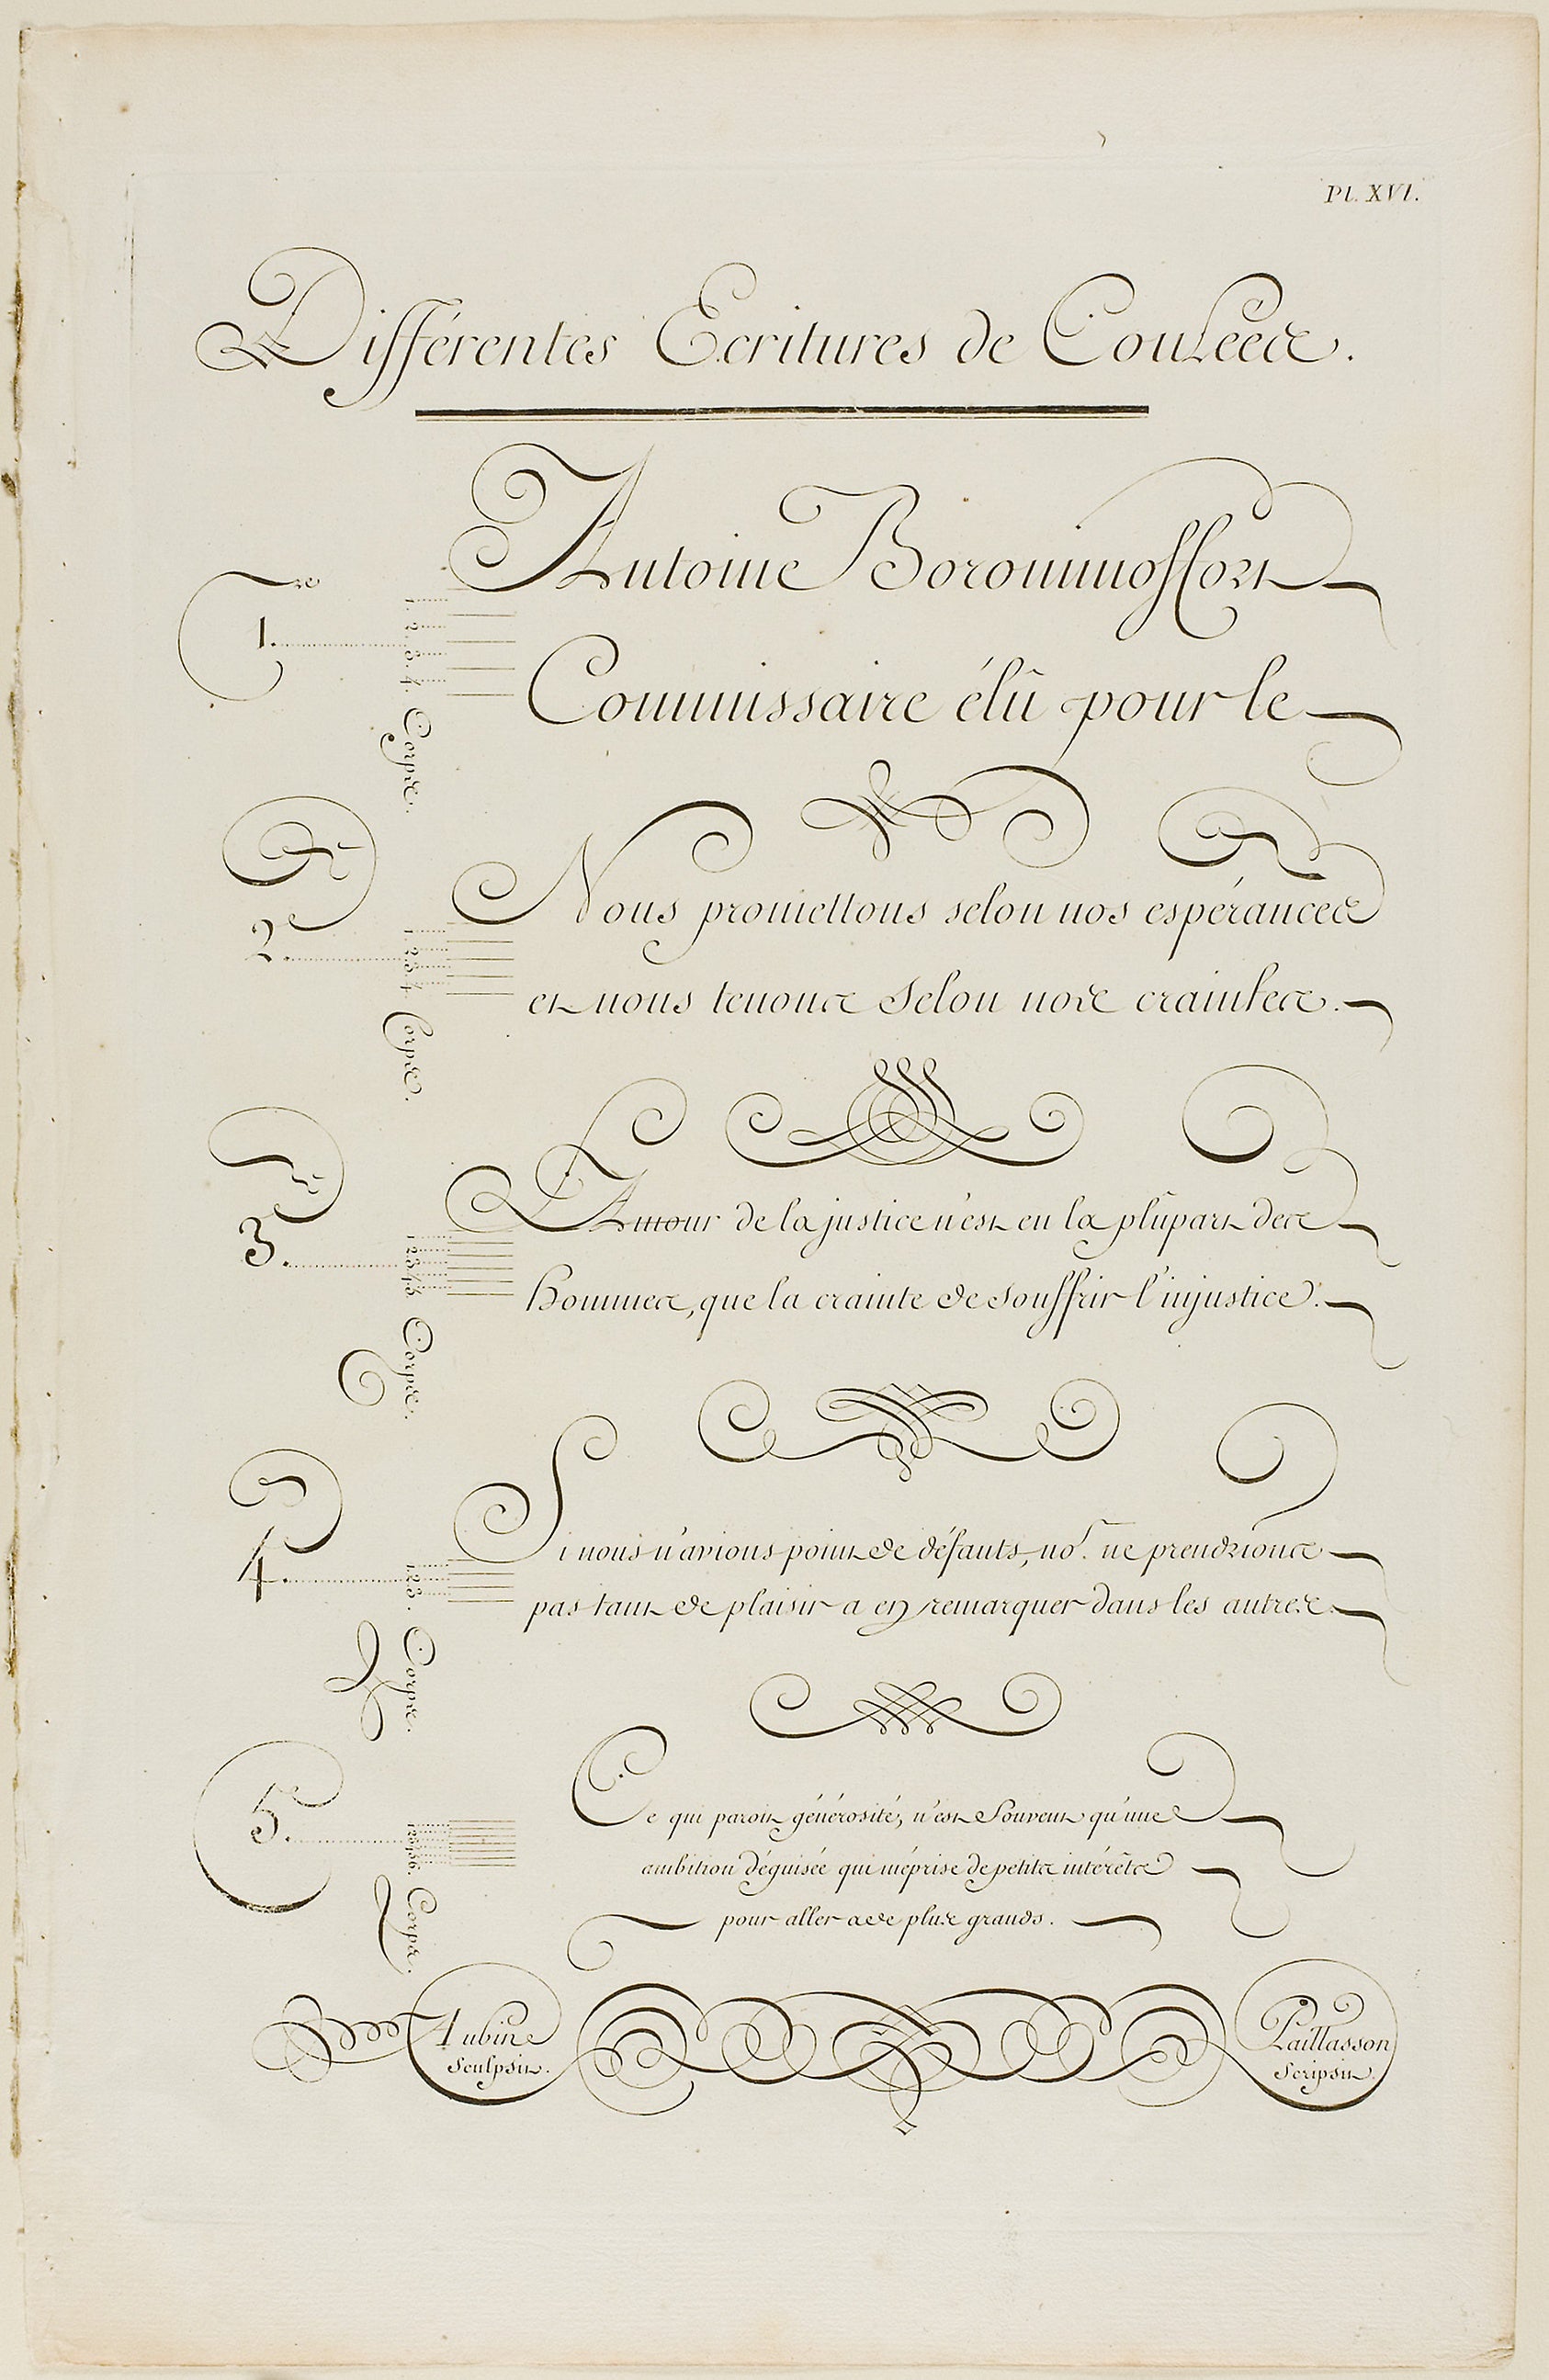 Pl. XVI.
Différentes Ecritures de Coulées.
Antoine
1.re
1. 2. 3. 4. Corps.
Commissaire élû pour le
2.e
1. 2. 3. 4. Corps.
Nous promettons selon nos espérances
et nous tenons selon nos craintes.
3.e
1 2 3 4 5 Corps.
L'Amour de la justice n'est en la plûpart des
hommes, que la crainte de souffrir l'injustice.
4.e
1 2 3. Corps.
Si nous n'avions point de défauts, no.s ne prendrions
pas tant de plaisir a en remarquer dans les autres.
5.e
Corps.
Ce qui paroit générosité, n'est souvent qu'une
ambition déguisée qui méprise de petits intérêts
pour aller a de plus grands.
Aubin
Sculpsit.
Paillasson
Scripsit.